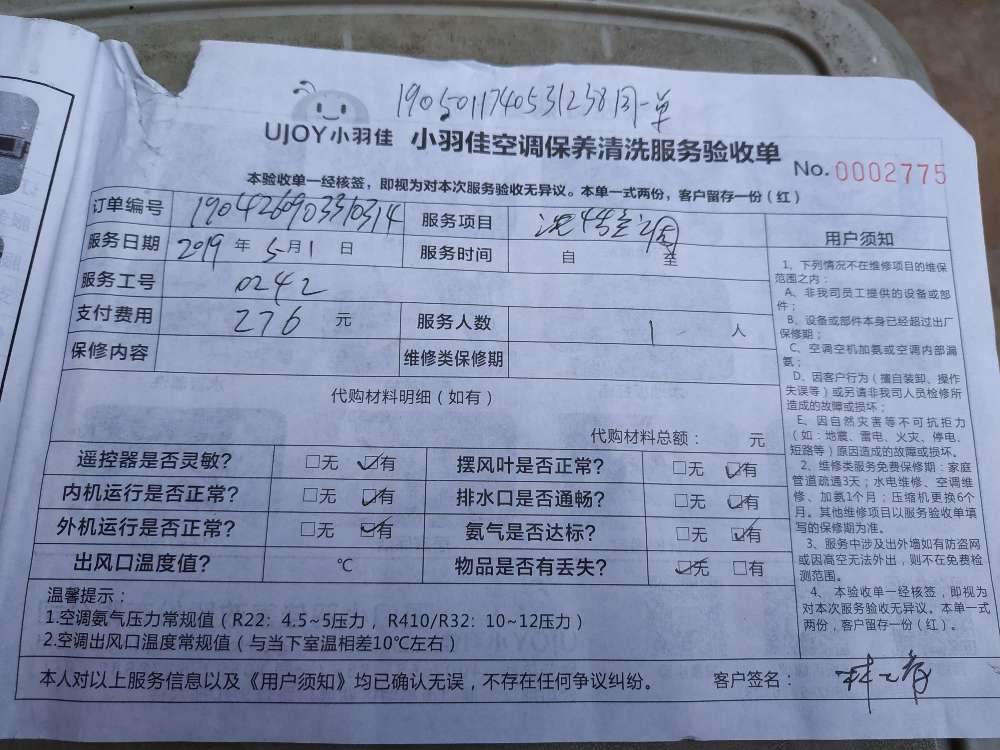 1905011740531238同一单
UJOY小羽佳 小羽佳空调保养清洗服务验收单
No. 0002775
本验收单一经核签，即视为对本次服务验收无异议。本单一式两份，客户留存一份（红）
订单编号 1904260903310314 服务项目
服务日期 2019 年 5 月 1 日 服务时间 自 至
服务工号 0242
支付费用 276 元 服务人数 1 人
保修内容 维修类保修期
代购材料明细（如有）
代购材料总额： 元
遥控器是否灵敏? □无 ☑有 摆风叶是否正常? □无 ☑有
内机运行是否正常? □无 ☑有 排水口是否通畅? □无 ☑有
外机运行是否正常? □无 ☑有 氨气是否达标? □无 ☑有
出风口温度值? ℃ 物品是否有丢失? ☑无 □有
温馨提示：
1.空调氨气压力常规值（R22：4.5~5压力，R410/R32：10~12压力）
2.空调出风口温度常规值（与当下室温相差10℃左右）
本人对以上服务信息以及《用户须知》均已确认无误，不存在任何争议纠纷。 客户签名：
用户须知
1、下列情况不在维修项目的维保
范围之内：
A、非我司员工提供的设备或部
件；
B、设备或部件本身已经超过出厂
保修期；
C、空调空机加氨或空调内部漏
氨；
D、因客户行为（擅自装卸、操作
失误等）或另请非我司人员检修所
造成的故障或损坏；
E、因自然灾害等不可抗拒力
（如：地震、雷电、火灾、停电、
短路等）原因造成的故障或损坏。
2、维修类服务免费保修期：家庭
管道疏通3天；水电维修、空调维
修、加氨1个月；压缩机更换6个
月。其他维修项目以服务验收单填
写的保修期为准。
3、服务中涉及出外墙如有防盗网
或因高空无法外出，则不在免费检
测范围。
4、本验收单一经核签，即视为
对本次服务验收无异议。本单一式
两份，客户留存一份（红）。